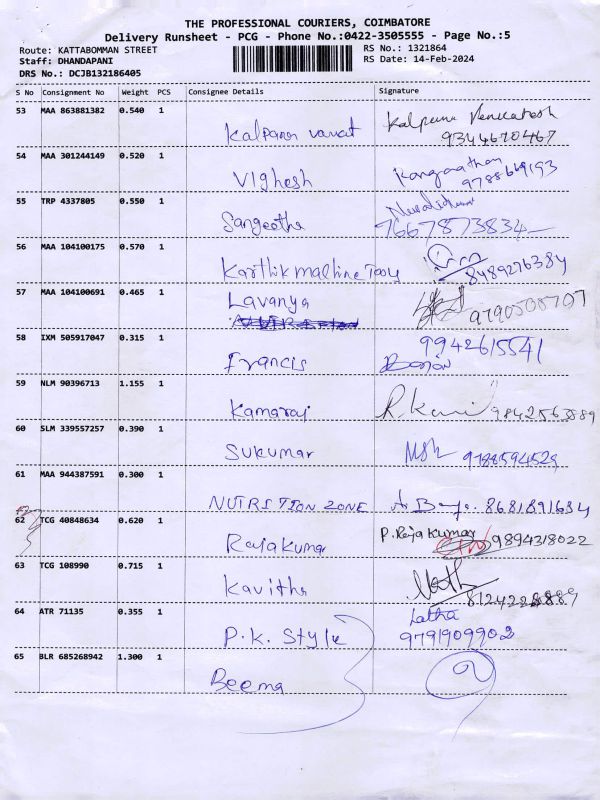 THE PROFESSIONAL COURIERS, COIMBATORE
Delivery Runsheet - PCG - Phone No.:0422-3505555 - Page No.:5
Route: KATTABOMMAN STREET RS No.: 1321864
Staff: DHANDAPANI RS Date: 14-Feb-2024
DRS No.: DCJB132186405
S No Consignment No Weight PCS Consignee Details Signature
53 MAA 863881382 0.540 1
Kalpana Kalpana Venkatesh
9344670467
54 MAA 301244149 0.520 1
Vighesh 9788669193
55 TRP 4337805 0.550 1
Sangeetha 7667873834
56 MAA 104100175 0.570 1
Karthik machine 8489276384
57 MAA 104100691 0.465 1
Lavanya
58 IXM 505917047 0.315 1
9942615541
Francis
59 NLM 90396713 1.155 1
Kamaraj 9842563889
60 SLM 339557257 0.390 1
Sukumar 9788594529
61 MAA 944387591 0.300 1
NUTRITION ZONE 8681891634
62 TCG 40848634 0.620 1
P. Raja Kumar
Rajakumar 9894318022
63 TCG 108990 0.715 1
Kavitha
64 ATR 71135 0.355 1
Latha
P.K. Style 9791909902
65 BLR 685268942 1.300 1
Beema